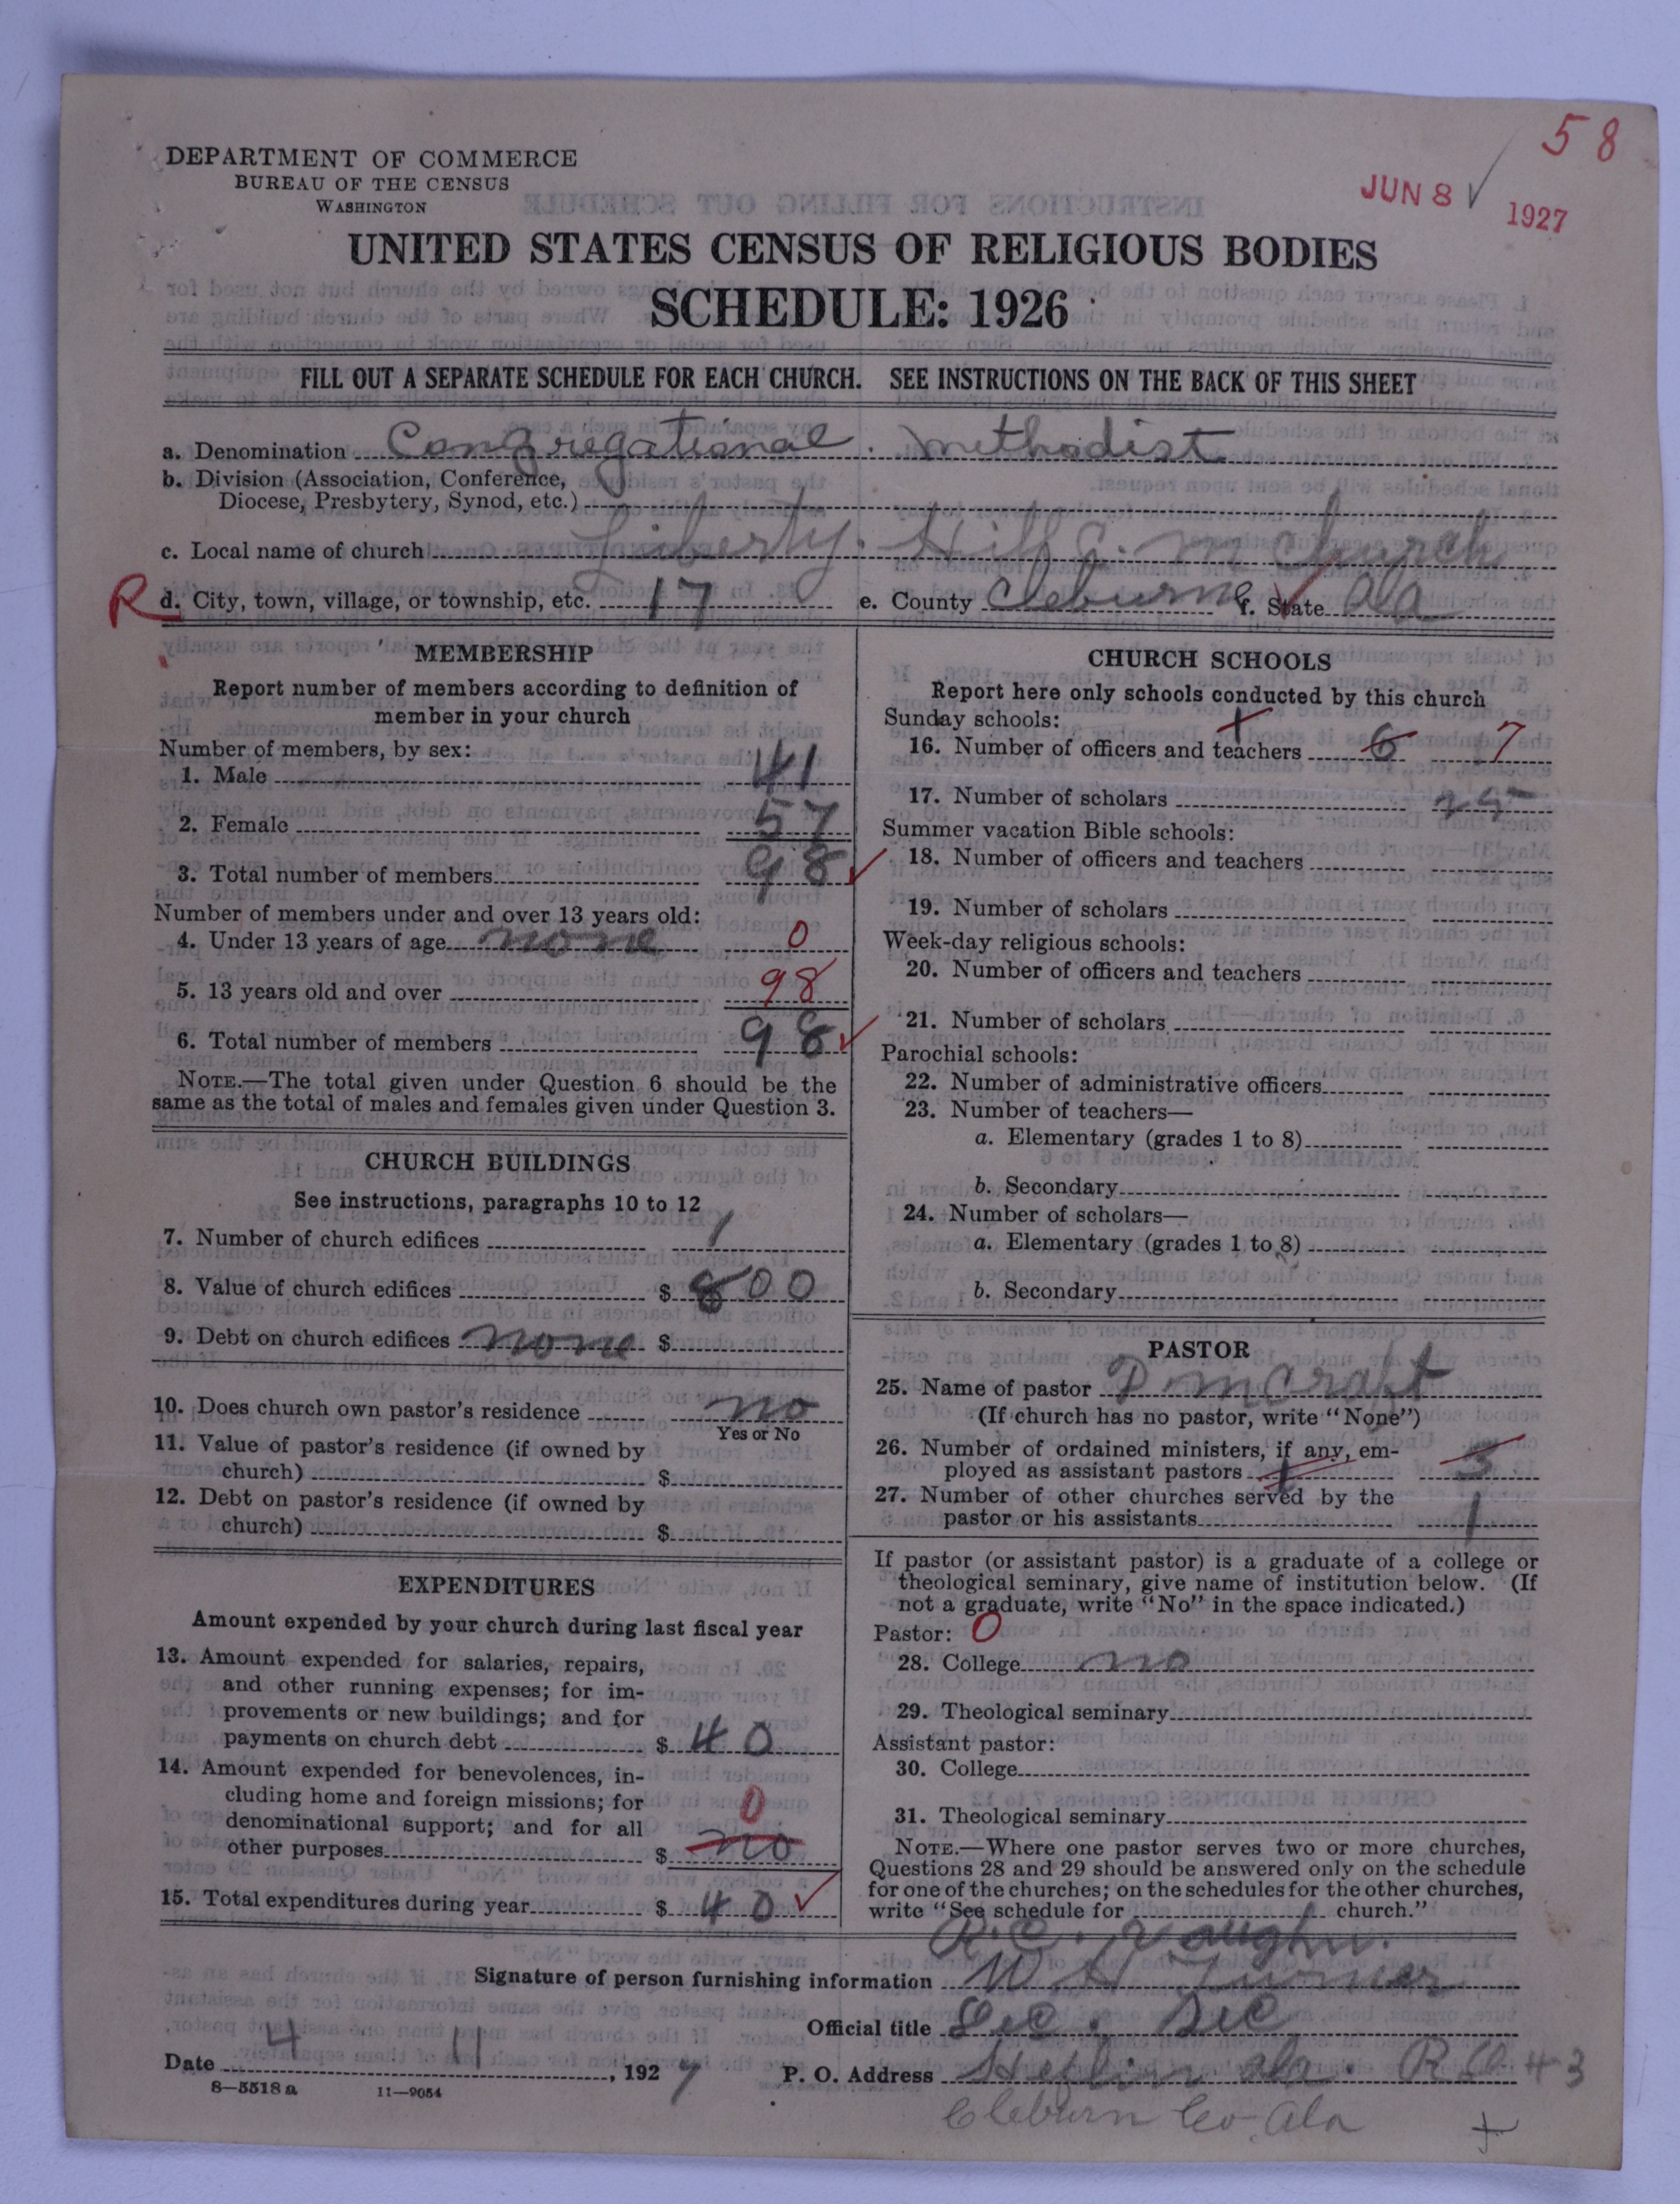 58
JUN 8 1927
DEPARTMENT OF COMMERCE
BUREAU OF THE CENSUS
WASHINGTON
UNITED STATES CENSUS OF RELIGIOUS BODIES
SCHEDULE: 1926
FILL OUT A SEPARATE SCHEDULE FOR EACH CHURCH. SEE INSTRUCTIONS ON THE BACK OF THIS SHEET
a. Denomination Congregational methodist
b. Division (Association, Conference,
Diocese, Presbytery, Synod, etc.)
c. Local name of church Liberty Hill C. m Church
R d. City, town, village, or township, etc. 17 e. County Cleburne f. State Ala
MEMBERSHIP
Report number of members according to definition of
member in your church
Number of members, by sex:
1. Male 41
2. Female 57
3. Total number of members 98
Number of members under and over 13 years old:
4. Under 13 years of age none 0
5. 13 years old and over 98
6. Total number of members 98
NOTE.—The total given under Question 6 should be the
same as the total of males and females given under Question 3.
CHURCH BUILDINGS
See instructions, paragraphs 10 to 12
7. Number of church edifices 1
8. Value of church edifices $ 800
9. Debt on church edifices none $
10. Does church own pastor's residence no
Yes or No
11. Value of pastor's residence (if owned by
church) $
12. Debt on pastor's residence (if owned by
church) $
EXPENDITURES
Amount expended by your church during last fiscal year
13. Amount expended for salaries, repairs,
and other running expenses; for im-
provements or new buildings; and for
payments on church debt $ 40
14. Amount expended for benevolences, in-
cluding home and foreign missions; for
denominational support; and for all
other purposes $ no 0
15. Total expenditures during year $ 40
CHURCH SCHOOLS
Report here only schools conducted by this church
Sunday schools:
16. Number of officers and teachers 6 7
17. Number of scholars 25
Summer vacation Bible schools:
18. Number of officers and teachers
19. Number of scholars
Week-day religious schools:
20. Number of officers and teachers
21. Number of scholars
Parochial schools:
22. Number of administrative officers
23. Number of teachers—
a. Elementary (grades 1 to 8)
b. Secondary
24. Number of scholars—
a. Elementary (grades 1 to 8)
b. Secondary
PASTOR
25. Name of pastor D m Craft
(If church has no pastor, write "None")
26. Number of ordained ministers, if any, em-
ployed as assistant pastors 3
27. Number of other churches served by the
pastor or his assistants 1
If pastor (or assistant pastor) is a graduate of a college or
theological seminary, give name of institution below. (If
not a graduate, write "No" in the space indicated.)
Pastor: 0
28. College no
29. Theological seminary
Assistant pastor:
30. College
31. Theological seminary
NOTE.—Where one pastor serves two or more churches,
Questions 28 and 29 should be answered only on the schedule
for one of the churches; on the schedules for the other churches,
write "See schedule for church."
R. C. Vaughn.
Signature of person furnishing information W H Turner
Official title Sec. Sec
Date 4 11, 1927 P. O. Address Heflin ala. R #3
8—5518 a 11—9054
Cleburn Co Ala